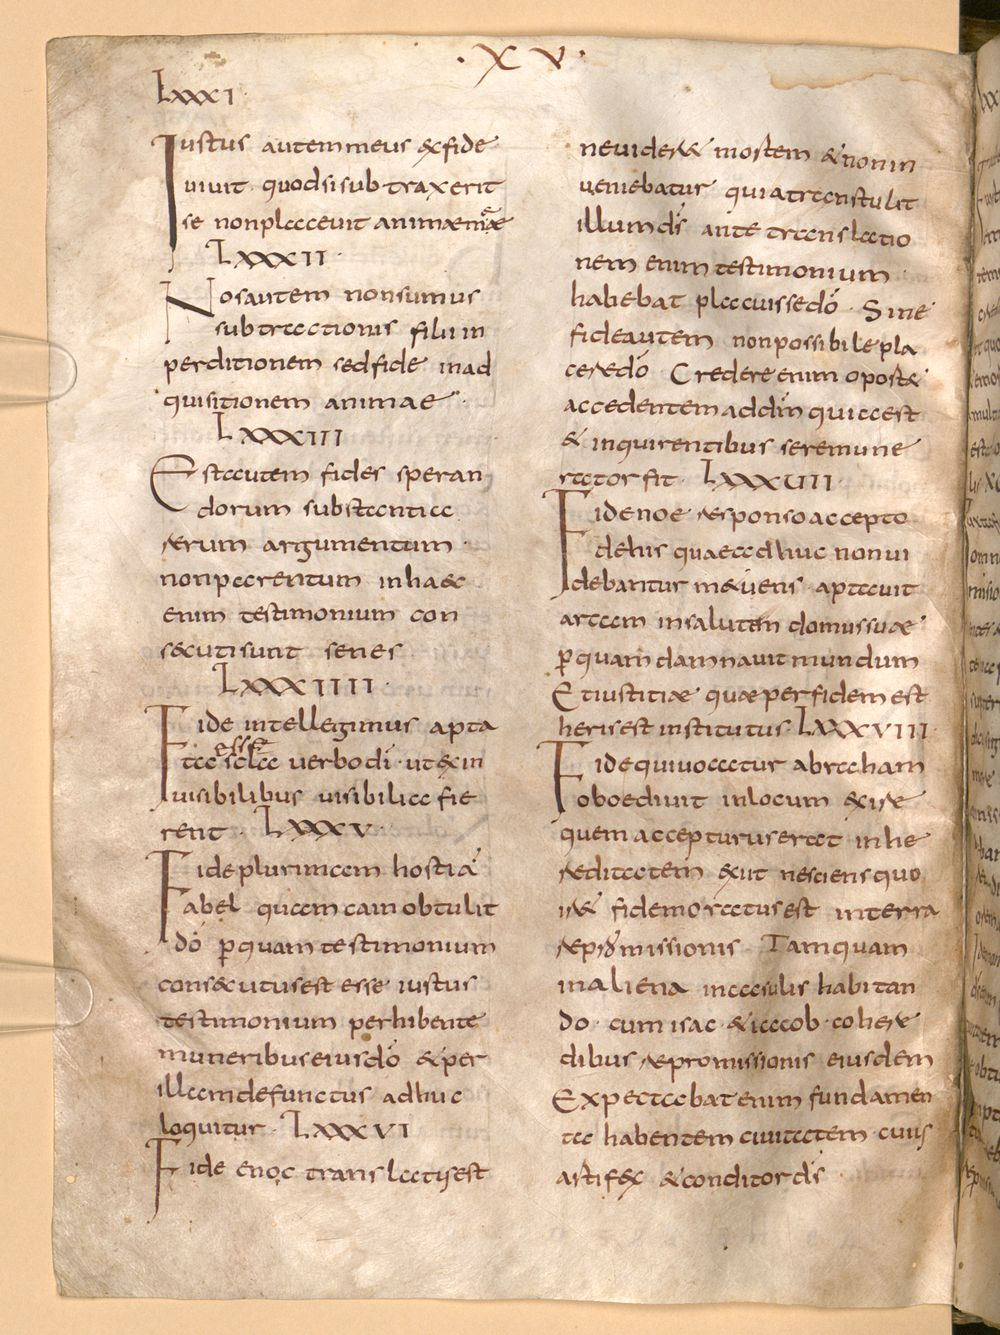 · X V ·
LXXXI
Iustus autem meus &fide
uiuit · quodsi subtraxerit
se non placeuit animae meae
LXXXII ·
Nos autem non sumus
subtractionis filii in
perditionem sed fide in ad
quisitionem animae ·
LXXXIII
Est autem fides speran
dorum substantia
rerum argumentum ·
non parentum in hac
enim testimonium con
secuti sunt senes ·
LXXXIIII ·
Fide intellegimus apta
ta esse scla uerbo di · ut ex in
uisibilibus uisibilia fie
rent · LXXXV ·
Fide plurimam hostiā
abel quam cain obtulit
dō p quam testimonium
consecutus est esse iustus
testimonium perhibente
muneribus eius dō & per
illam defunctus adhuc
loquitur · LXXXVI
Fide enoc translatus est
ne uider& mortem & non in
ueniebatur quia transtulit
illum ds̄ ante translatio
nem enim testimonium
habebat placuisse dō · Sine
fide autem non possibile pla
cere dō Credere enim oport&
accedentem ad dm̄ quia est
& inquirentibus se remune
rator fit · LXXXVII
Fide noe responso accepto
de his quae adhuc non ui
debantur m&uens aptauit
arcam in salutem domus suae
p quam damnauit mundum
Et iustitiae quae per fidem est
heris est institutus · LXXXVIII
Fide qui uocatur abraham
oboediuit in locum exire
quem accepturus erat in he
reditatem exiit nesciens quo
ir& fidemoratus est in terra
repromissionis · Tamquam
in aliena in casulis habitan
do · cum isac · & iacob · cohere
dibus repromissionis eiusdem
Expectabat enim fundamen
ta habentem ciuitatem cuius
artifex & conditor ds̄ ·